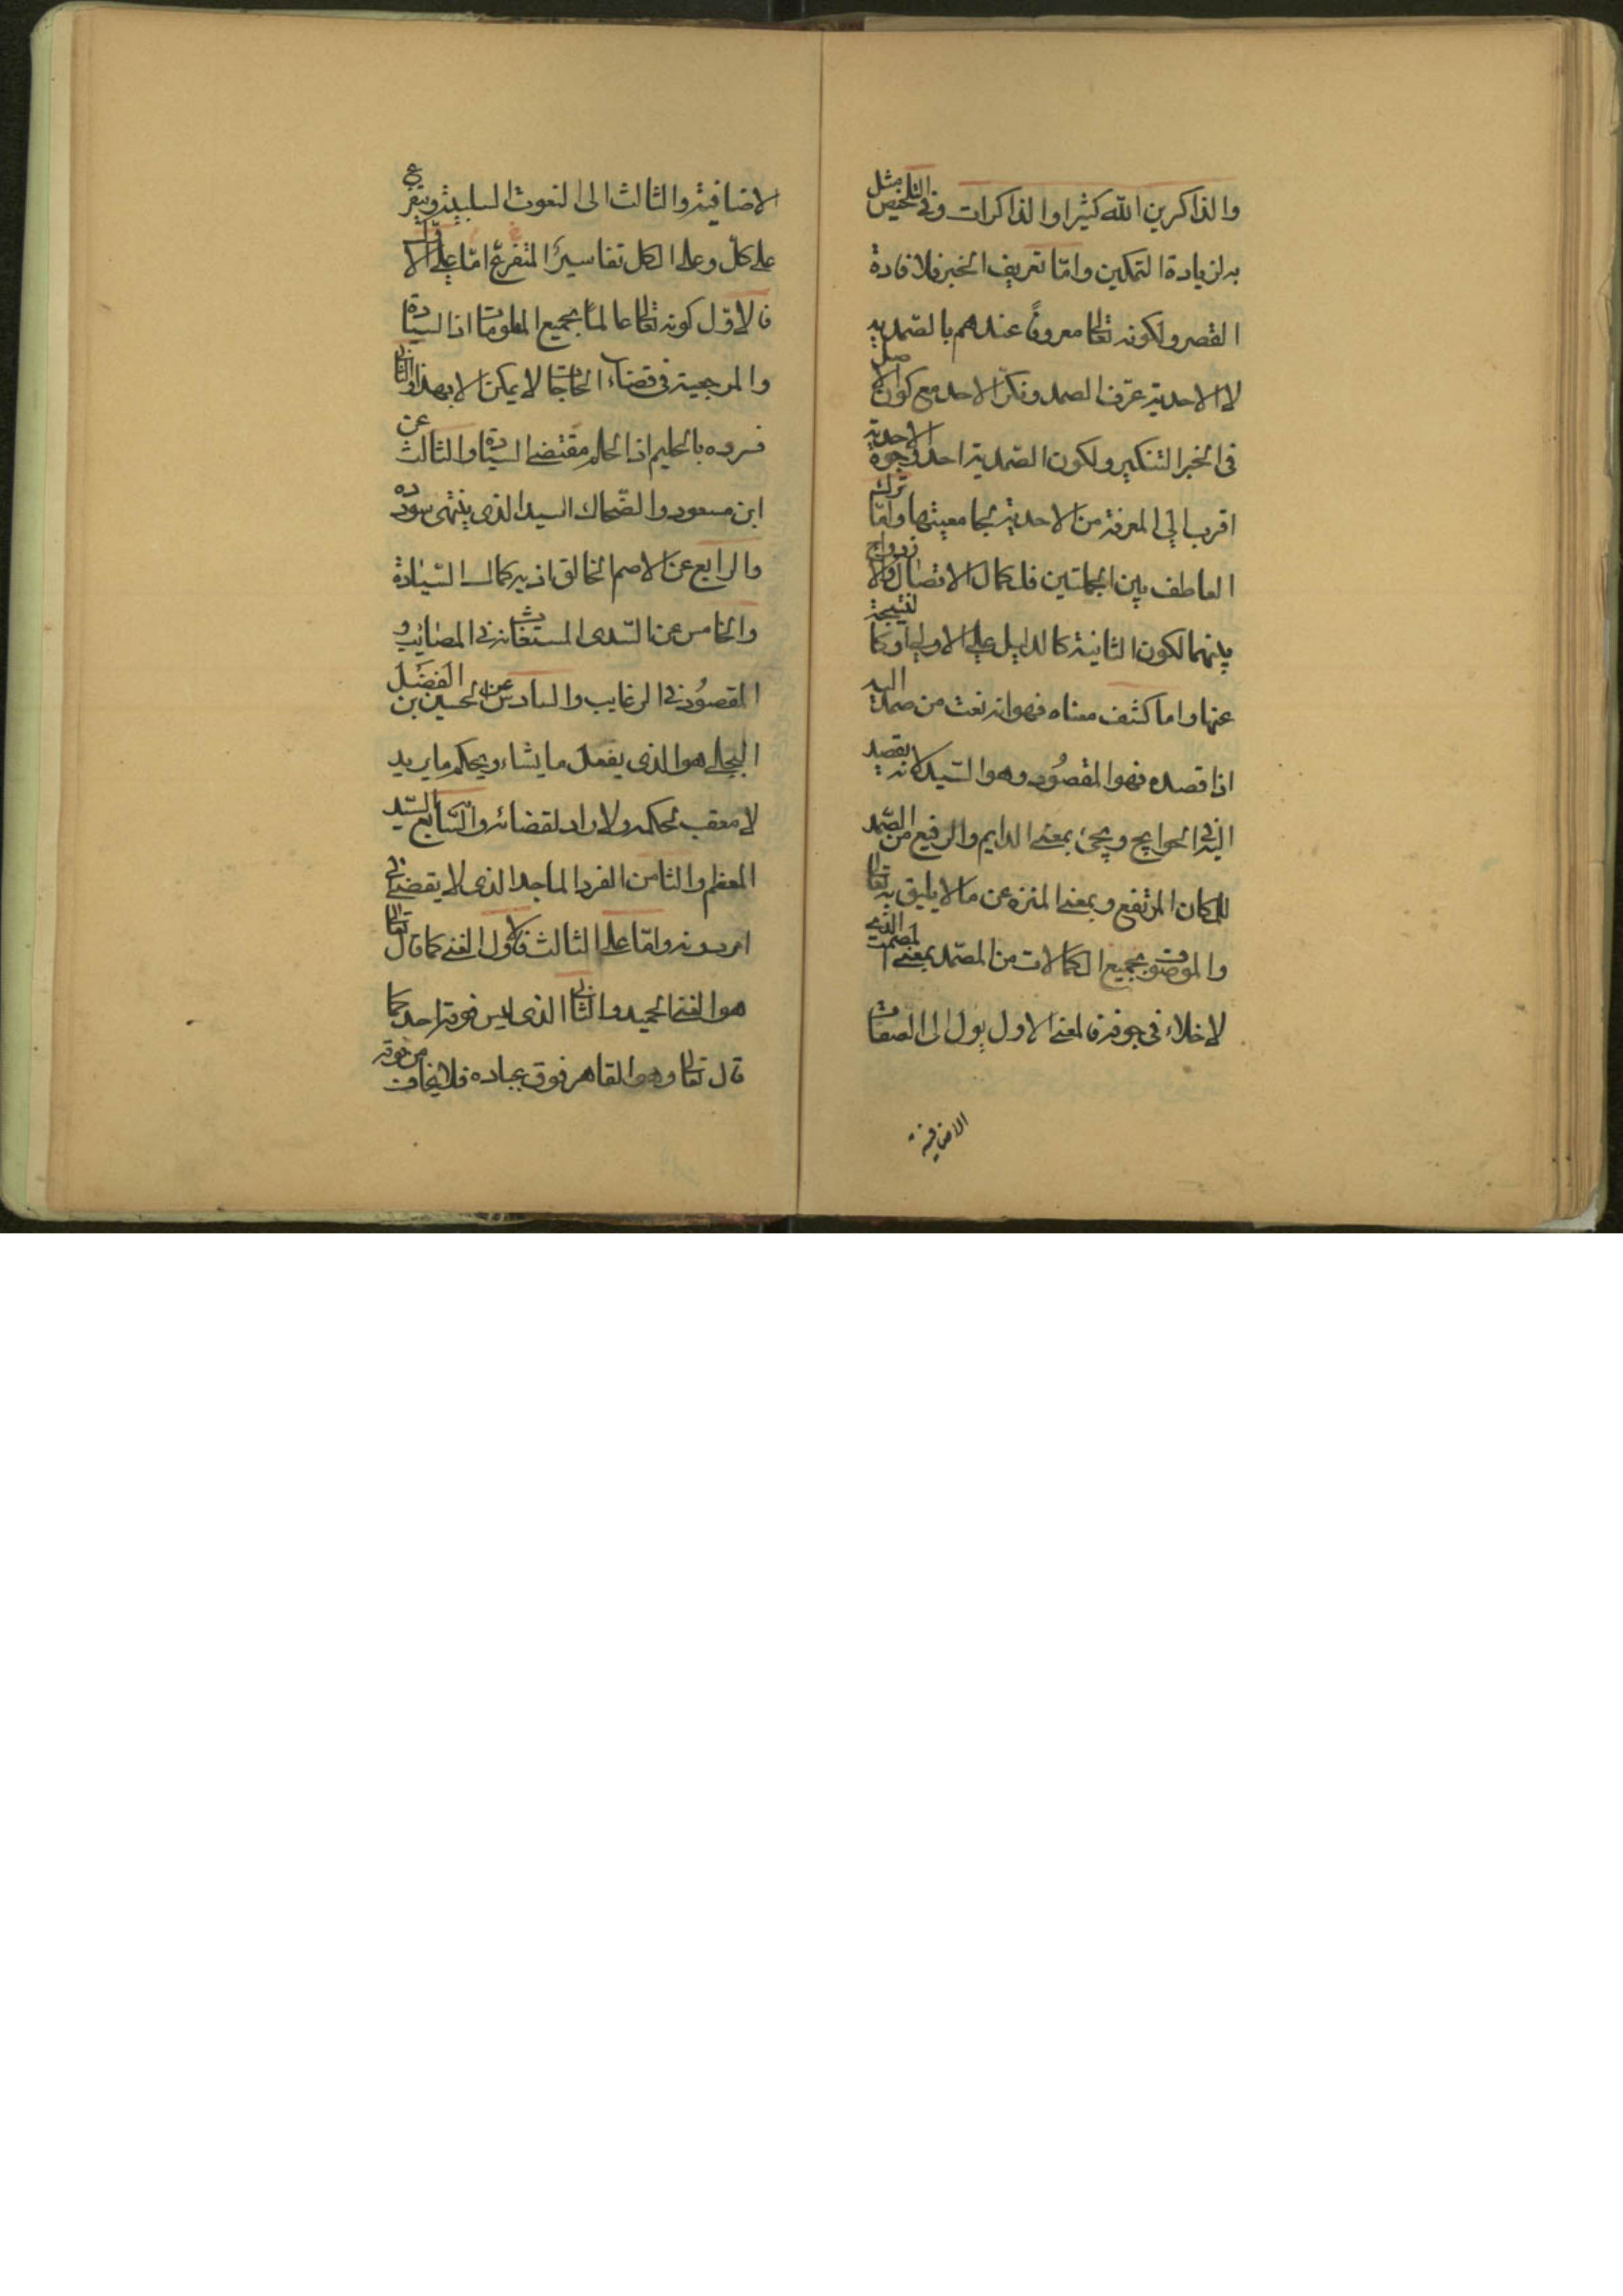 والذاكرين الله كثيرا والذاكرات وفي التلخيص مثل
به لزيادة التمكين واما تعريف الخبر فلافادة
القصر ولكونه تعالى معروفا عندهم بالصمدية
لا الاحدية عرف الصمد ونكر الاحد مع كون الاصل
في الخبر التنكير ولكون الصمدية احد وجوه الاحدية
اقرب الى المعرفة من الاحدية لجامعيتها واما ترك
العاطف بين الجملتين فلكمال الاتصال والازدواج
بينهما لكون الثانية كالدليل على الاولى او كالنتيجة
عنها واما كشف معناه فهو انه نعت من صمد اليه
اذا قصده فهو المقصود وهو السيد لانه يقصد
اليه في الحوايج ويجئ بمعنى الدايم والرفيع من الصمد
للمكان المرتفع وبمعنى المنزه عن ما لا يليق به تعالى
والموصوف بجميع الكمالات من المصمد بمعنى المصمت الذي
لا خلاء في جوفه فالمعنى الاول يول الى الصفات
الاضافية
الاضافية والثالث الى النعوت السلبية ويتفرع
على كل وعلى الكل تفاسير المتفرع اما على الاول
فالاول كونه تعالى عالما بجميع المعلومات اذ السيادة
والمرجعية في قضاء الحاجات لا يمكن الا بهذا والثاني
فسروه بالحليم اذ الحلم مقتضى السيادة والثالث عن
ابن مسعود والضحاك السيد الذي ينتهى سودده
والرابع عن الاصم الخالق اذ به كمال السيادة
والخامس عن السدى المستغاث في المصائب و
المقصود في الرغايب والسادس عن الحسين بن الفضل
البجلي هو الذي يفعل ما يشاء ويحكم ما يريد
لا معقب لحكمه ولا راد لقضائه والسابع السيد
المعظم والثامن الفرد الماجد الذي لا يقضى في
امر دونه واما على الثالث فالاول الغنى كما قال تعالى
هو الغنى الحميد والثاني الذي ليس فوقه احد كما
قال تعالى وهو القاهر فوق عباده فلا يخاف من فوقه